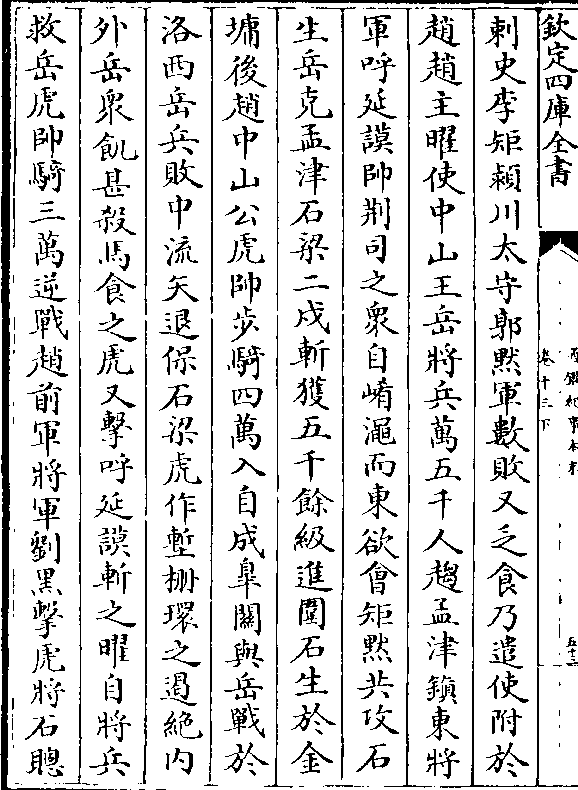 欽定四庫全書
卷十三下
刺史李矩潁川太守郭黙軍數敗又乏食乃遣使附於
趙趙主曜使中山王岳將兵萬五千人趨孟津鎮東將
軍呼延謨帥荆司之衆自崤澠而東欲會矩黙共攻石
生岳克孟津石梁二戍斬獲五千餘級進圍石生於金
墉後趙中山公虎帥步騎四萬入自成臯關與岳戰於
洛西岳兵敗中流矢退保石梁虎作塹栅環之遏絶内
外岳衆飢甚殺馬食之虎又擊呼延謨斬之曜自將兵
救岳虎帥騎三萬逆戰趙前軍將軍劉黒擊虎將石聰